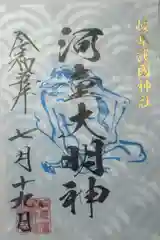 岐阜護國神社
河童大明神
令和五年
七月十九日